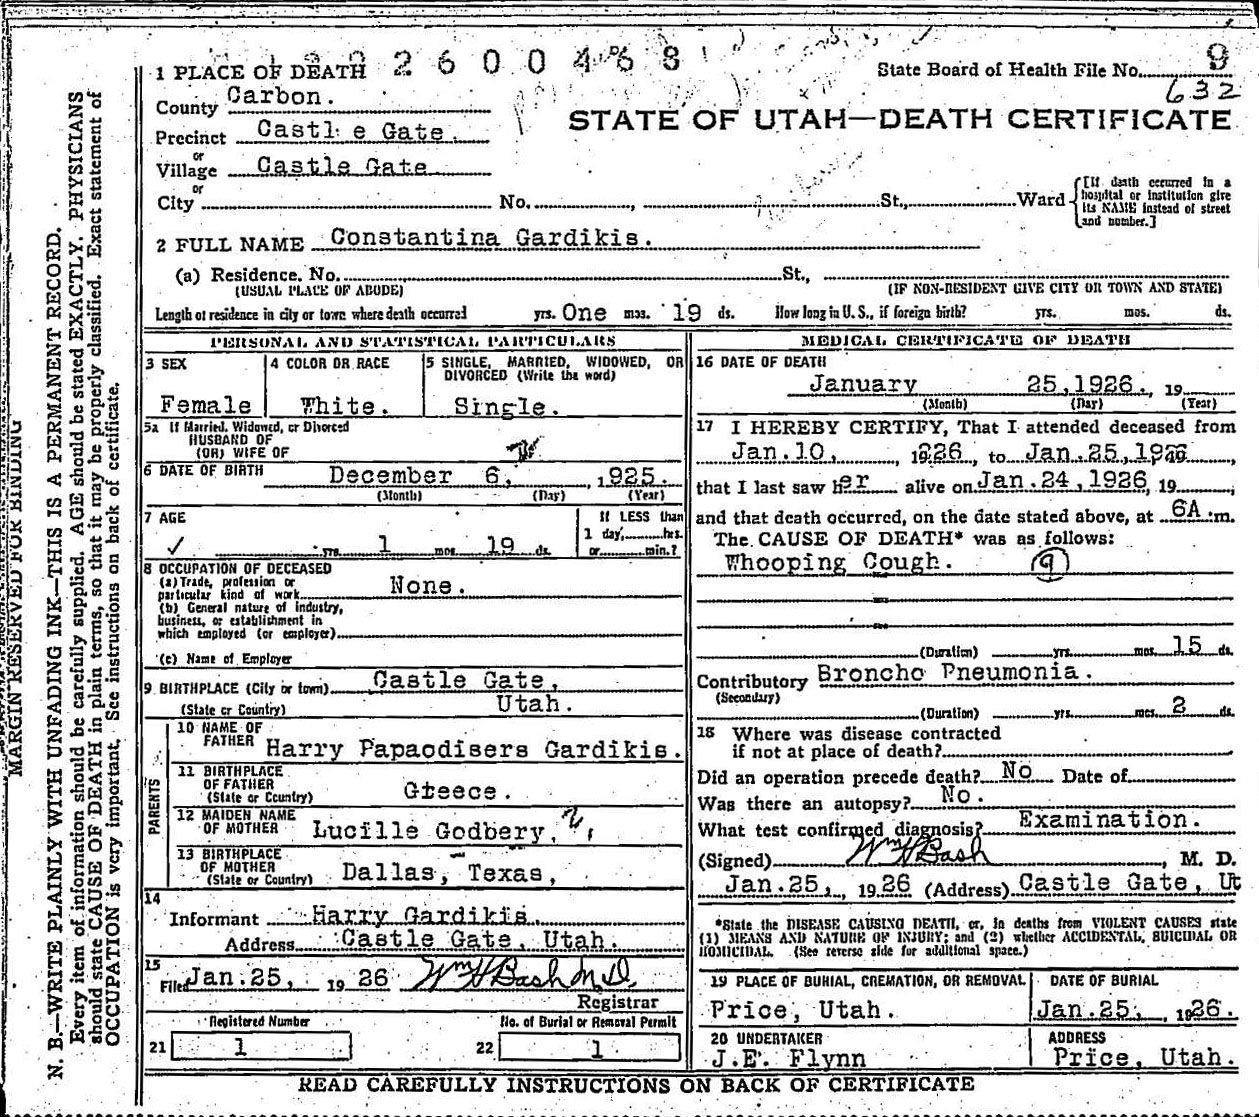 2600468
1 PLACE OF DEATH
State Board of Health File No. 9
632
County Carbon.
STATE OF UTAH—DEATH CERTIFICATE
Precinct Castle Gate.
or
Village Castle Gate
or
City No. , St., Ward [If death occurred in a hospital or institution give its NAME instead of street and number.]
2 FULL NAME Constantina Gardikis.
(a) Residence. No. St.,
(USUAL PLACE OF ABODE) (IF NON-RESIDENT GIVE CITY OR TOWN AND STATE)
Length of residence in city or town where death occurred yrs. One mos. 19 ds. How long in U. S., if foreign birth? yrs. mos. ds.
PERSONAL AND STATISTICAL PARTICULARS
3 SEX
Female
4 COLOR OR RACE
White.
5 SINGLE, MARRIED, WIDOWED, OR
DIVORCED (Write the word)
Single.
5a If Married, Widowed, or Divorced
HUSBAND OF
(OR) WIFE OF
6 DATE OF BIRTH December 6, , 1925.
(Month) (Day) (Year)
7 AGE
✓ yrs. 1 mos. 19 ds.
If LESS than
1 day, hrs.
or min.?
8 OCCUPATION OF DECEASED
(a) Trade, profession or
particular kind of work None.
(b) General nature of industry,
business, or establishment in
which employed (or employer)
(c) Name of Employer
9 BIRTHPLACE (City or town) Castle Gate,
(State or Country) Utah.
PARENTS
10 NAME OF
FATHER Harry Papaodisers Gardikis.
11 BIRTHPLACE
OF FATHER
(State or Country) Greece.
12 MAIDEN NAME
OF MOTHER Lucille Godbery,
13 BIRTHPLACE
OF MOTHER
(State or Country) Dallas, Texas,
14
Informant Harry Gardikis.
Address Castle Gate, Utah.
15
Filed Jan.25, 19 26 Wm H Bash M.D.
Registrar
Registered Number
21 1
No. of Burial or Removal Permit
22 1
MEDICAL CERTIFICATE OF DEATH
16 DATE OF DEATH
January 25,1926. , 19
(Month) (Day) (Year)
17 I HEREBY CERTIFY, That I attended deceased from
Jan.10, , 1926, to Jan.25,1926,
that I last saw her alive on Jan.24,1926, 19 ;
and that death occurred, on the date stated above, at 6A.m.
The CAUSE OF DEATH* was as follows:
Whooping Cough. 9
(Duration) yrs. mos. 15 ds.
Contributory Broncho Pneumonia.
(Secondary)
(Duration) yrs. mos. 2 ds.
18 Where was disease contracted
if not at place of death?
Did an operation precede death? No Date of
Was there an autopsy? No.
What test confirmed diagnosis? Examination.
(Signed) Wm H Bash , M. D.
Jan.25, , 1926 (Address) Castle Gate, Ut
*State the DISEASE CAUSING DEATH, or, in deaths from VIOLENT CAUSES state
(1) MEANS AND NATURE OF INJURY; and (2) whether ACCIDENTAL, SUICIDAL OR
HOMICIDAL. (See reverse side for additional space.)
19 PLACE OF BURIAL, CREMATION, OR REMOVAL
Price, Utah.
DATE OF BURIAL
Jan.25, , 1926.
20 UNDERTAKER
J.E. Flynn
ADDRESS
Price, Utah.
READ CAREFULLY INSTRUCTIONS ON BACK OF CERTIFICATE
MARGIN RESERVED FOR BINDING
N. B.—WRITE PLAINLY WITH UNFADING INK—THIS IS A PERMANENT RECORD.
Every item of information should be carefully supplied. AGE should be stated EXACTLY. PHYSICIANS
should state CAUSE OF DEATH in plain terms, so that it may be properly classified. Exact statement of
OCCUPATION is very important. See instructions on back of certificate.